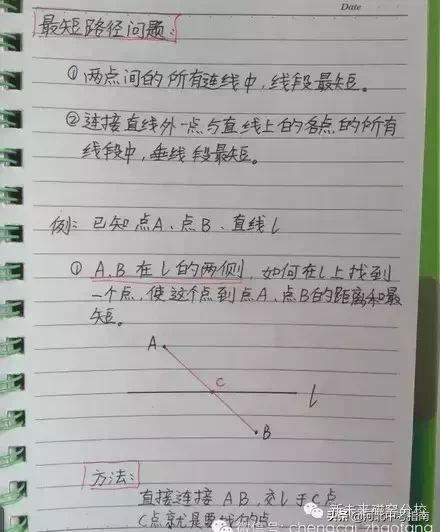 Date
最短路径问题:
①两点间的所有连线中,线段最短。
②连接直线外一点与直线上的各点的所有
线段中,垂线段最短。
例: 已知点A、点B、直线l
①A、B在l的两侧,如何在l上找到
一个点,使这个点到点A、点B的距离和最
短。
A
C
l
B
方法:
直接连接AB,交l于C点
C点就是要找的点
头条@河北中考指南